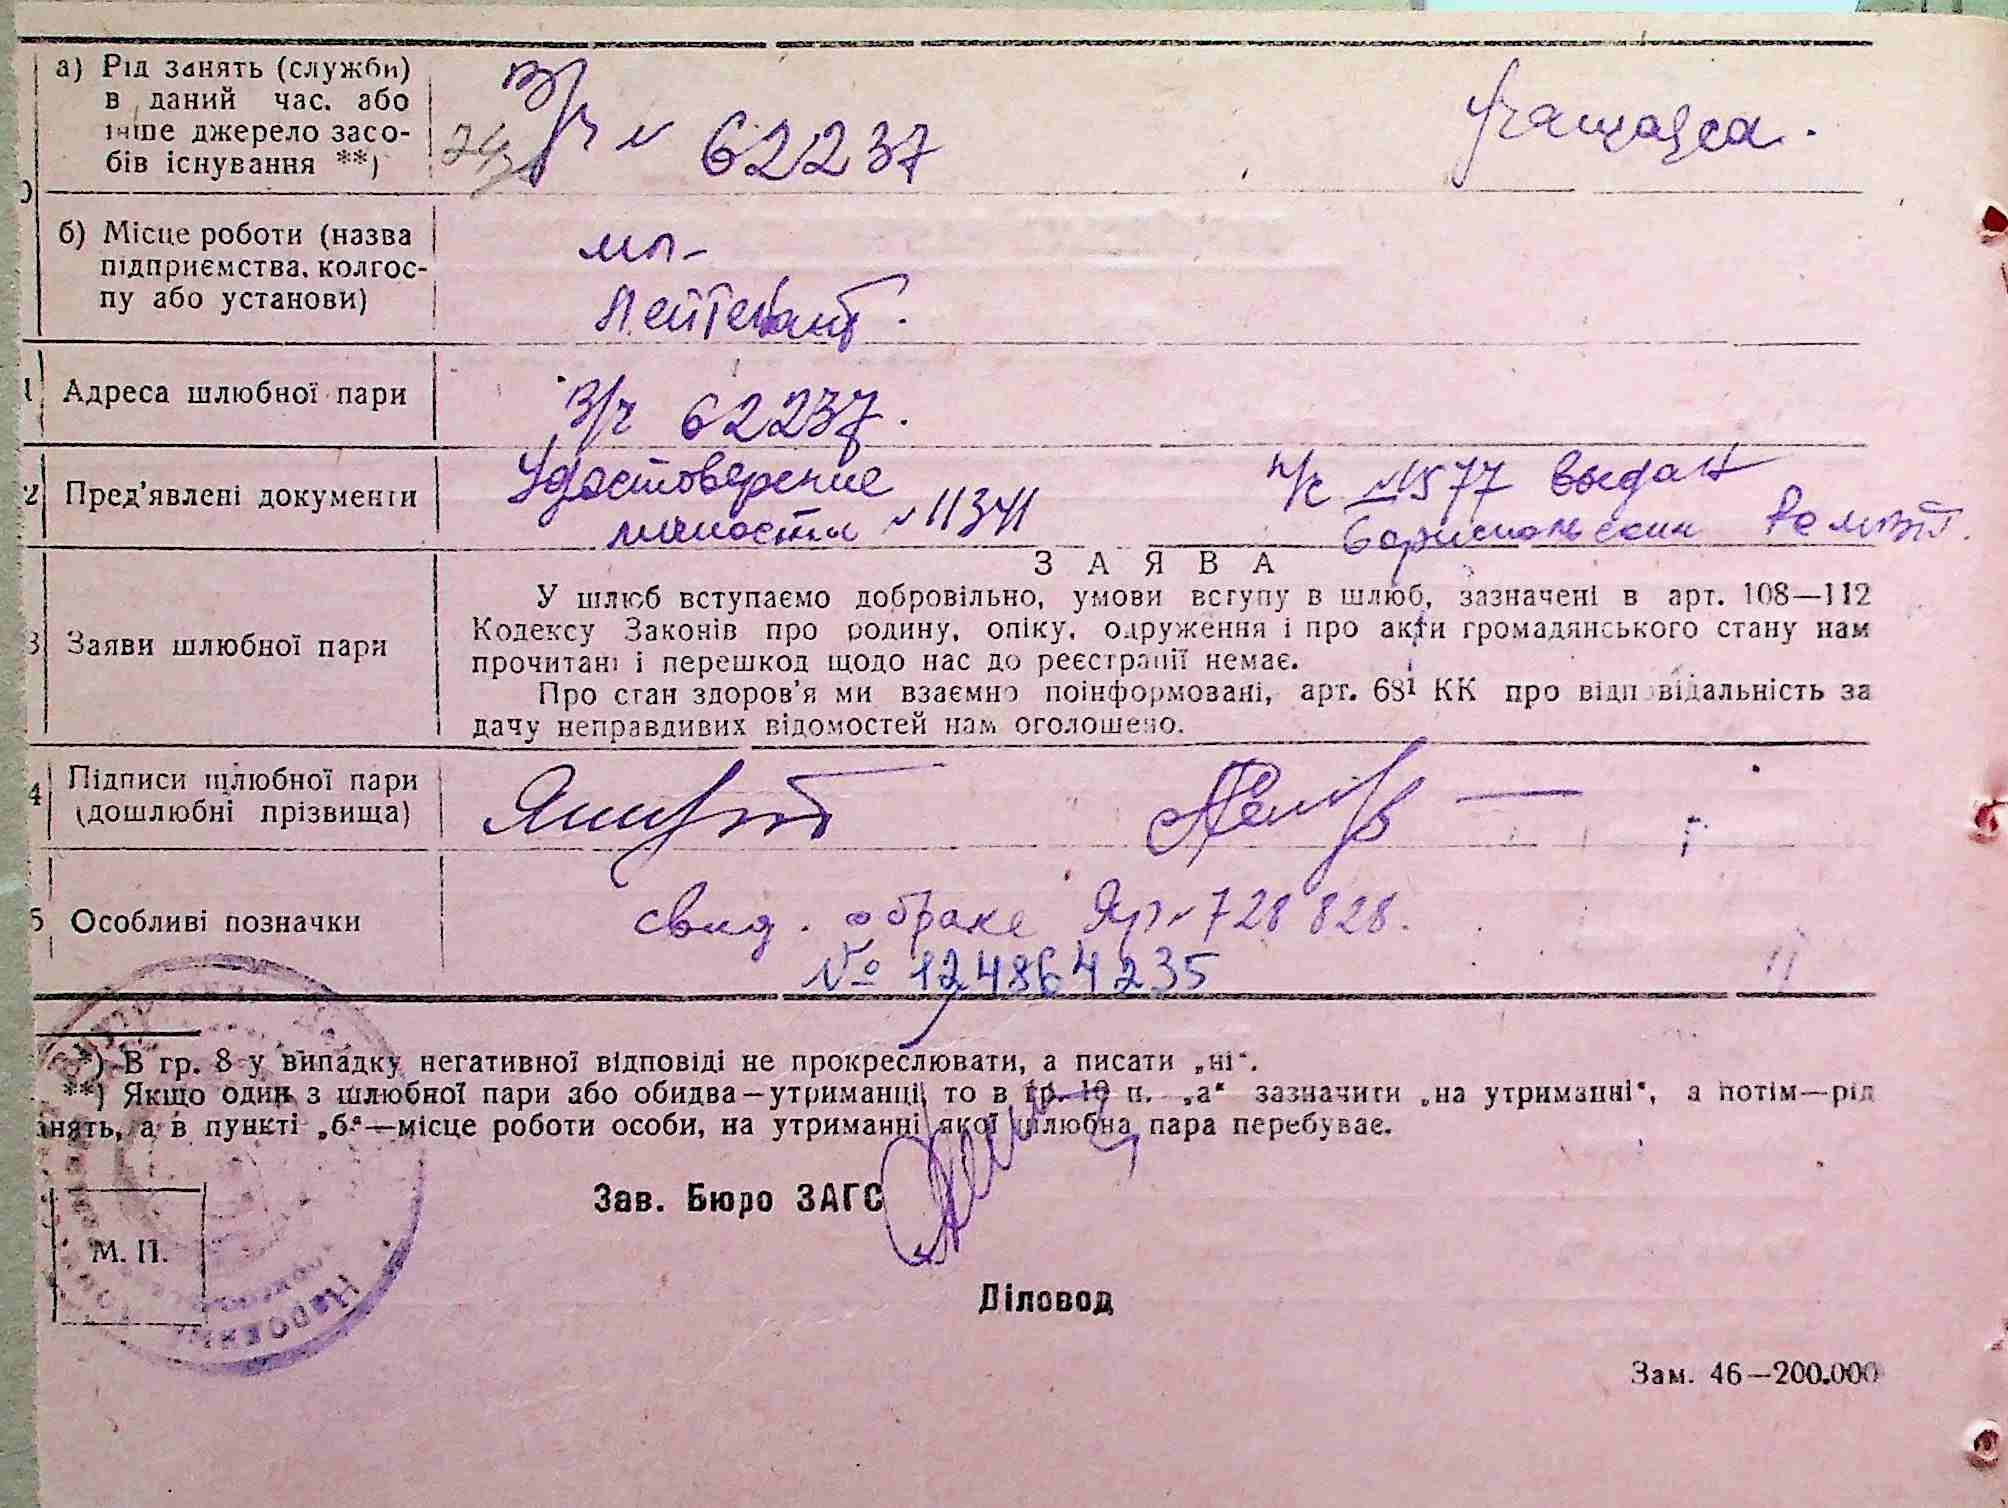 а) Рід занять (служби)
в даний час. або
інше джерело засо-
бів існування **)
В/ч № 62237
учащаяся.
б) Місце роботи (назва
підприємства, колгос-
пу або установи)
мл-
Лейтенант.
Адреса шлюбної пари
В/ч 62237.
2 Пред’явлені документи
Удостоверение
личности № 11341
п/с № 1577 выдан
бориспольским РОМВД.
З А Я В А
3 Заяви шлюбної пари
У шлюб вступаємо добровільно, умови вступу в шлюб, зазначені в арт. 108—112
Кодексу Законів про родину, опіку, одруження і про акти громадянського стану нам
прочитані і перешкод щодо нас до реєстрації немає.
Про стан здоров’я ми взаємно поінформовані, арт. 68¹ КК про відповідальність за
дачу неправдивих відомостей нам оголошено.
4 Підписи шлюбної пари
(дошлюбні прізвища)
5 Особливі позначки
свид. о браке Яр № 728828.
№ 124864235
*) В гр. 8 у випадку негативної відповіді не прокреслювати, а писати „ні“.
**) Якщо один з шлюбної пари або обидва—утриманці, то в гр. 10 п. „а“ зазначити „на утриманні“, а потім—рід
нять, а в пункті „б“—місце роботи особи, на утриманні якої шлюбна пара перебуває.
Зав. Бюро ЗАГС
М. П.
Діловод
Зам. 46—200.000